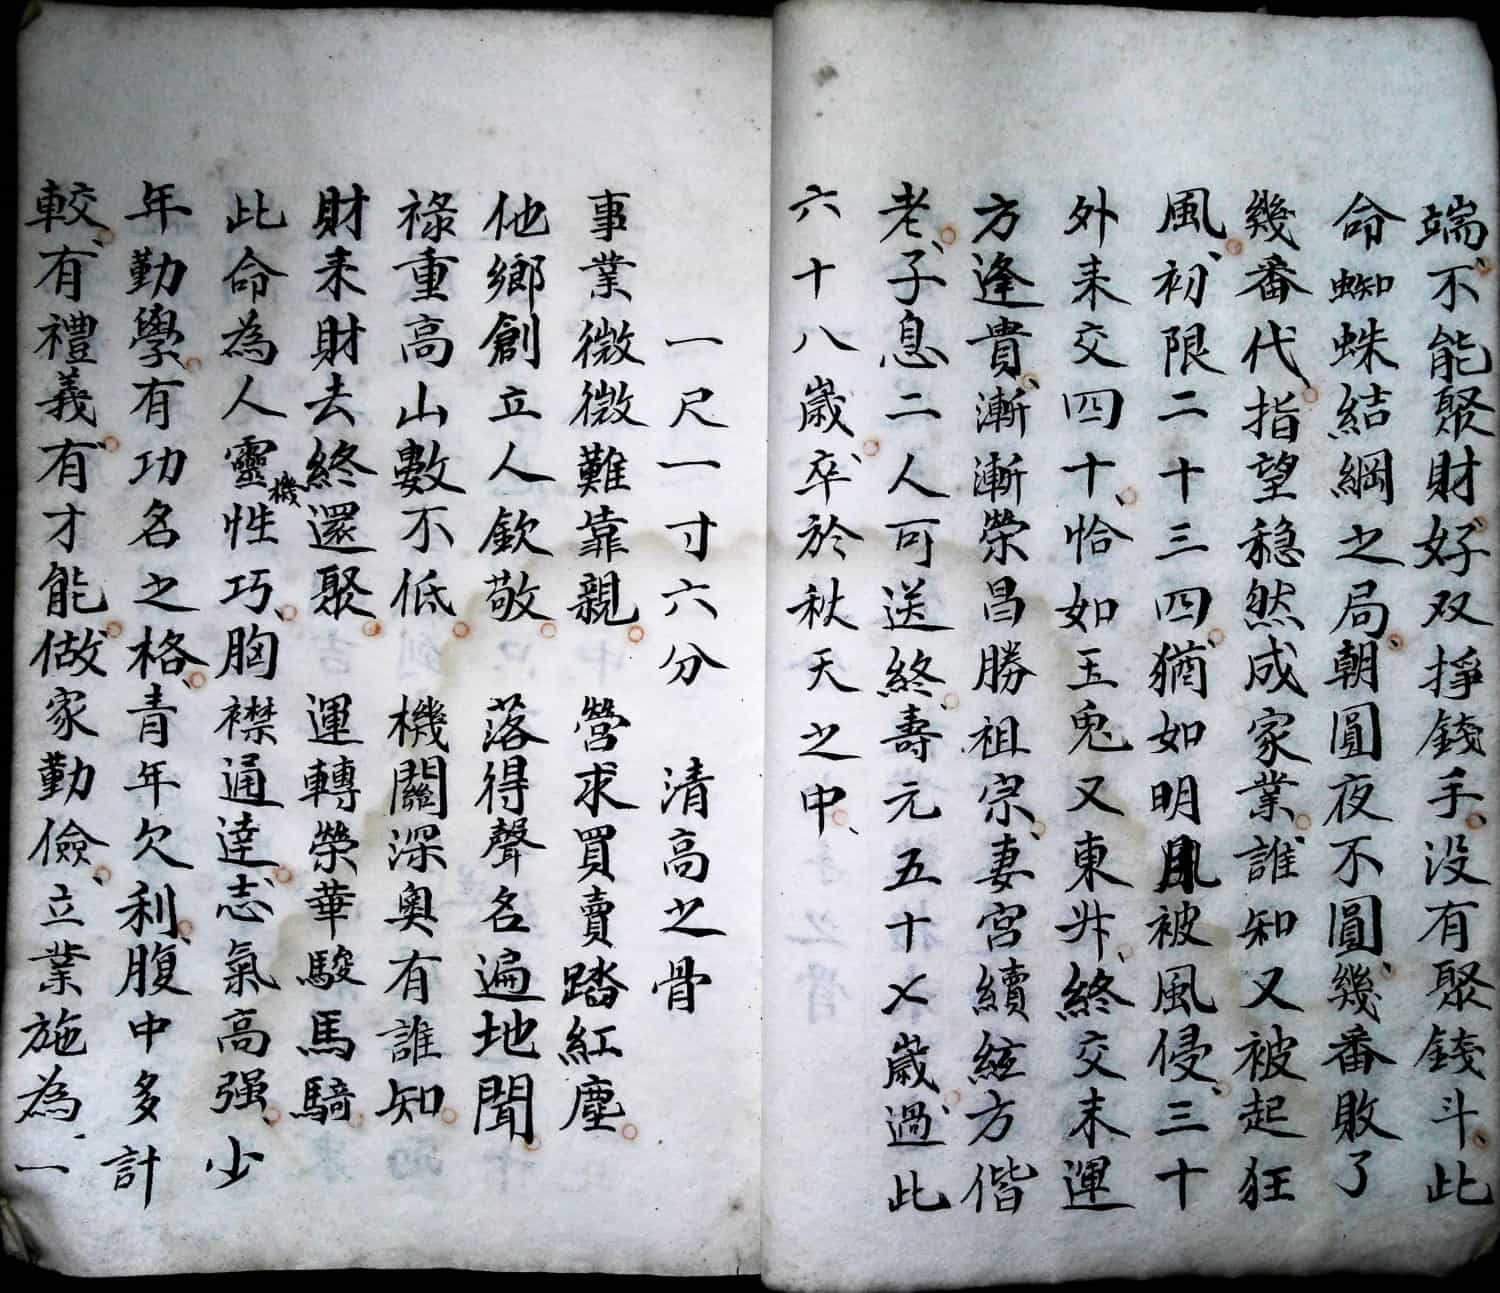 端、不能聚財、好双掙錢手、没有聚錢斗、此
命蜘蛛結綱之局、朝圓夜不圓、幾番敗了
幾番代、指望穏然成家業、誰知又被起狂
風、初限二十三四、猶如明月被風侵、三十
外耒交四十、恰如玉兎又東升、終交末運
方逢貴、漸漸榮昌勝祖宗、妻宮續絃方偕
老、子息二人可送終、壽元五十〤歲過、此
六十八歲、卒於秋天之中、
一尺一寸六分　清高之骨
事業微微難靠親　營求買賣踏紅塵
他鄉創立人欽敬　落得聲名遍地聞
祿重高山數不低　機關深奥有誰知
財耒財去終還聚　運轉榮華駿馬騎
此命為人靈機性巧、胸襟通達、志氣高强、少
年勤學、有功名之格、青年欠利、腹中多計
較、有禮義、有才能、做家勤儉、立業施為、一